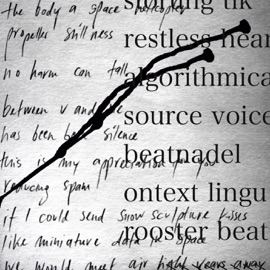 the body a space helicopter
storing tik
propeller stillness
restless hear
no harm can fall
algorithmica
between v and
source voice
has been silence
this is my appreciation to you
beatnadel
reducing spam
ontext lingu
if I could send snow sculpture kisses
like miniature data in space
rooster beat
we would meet air light years away